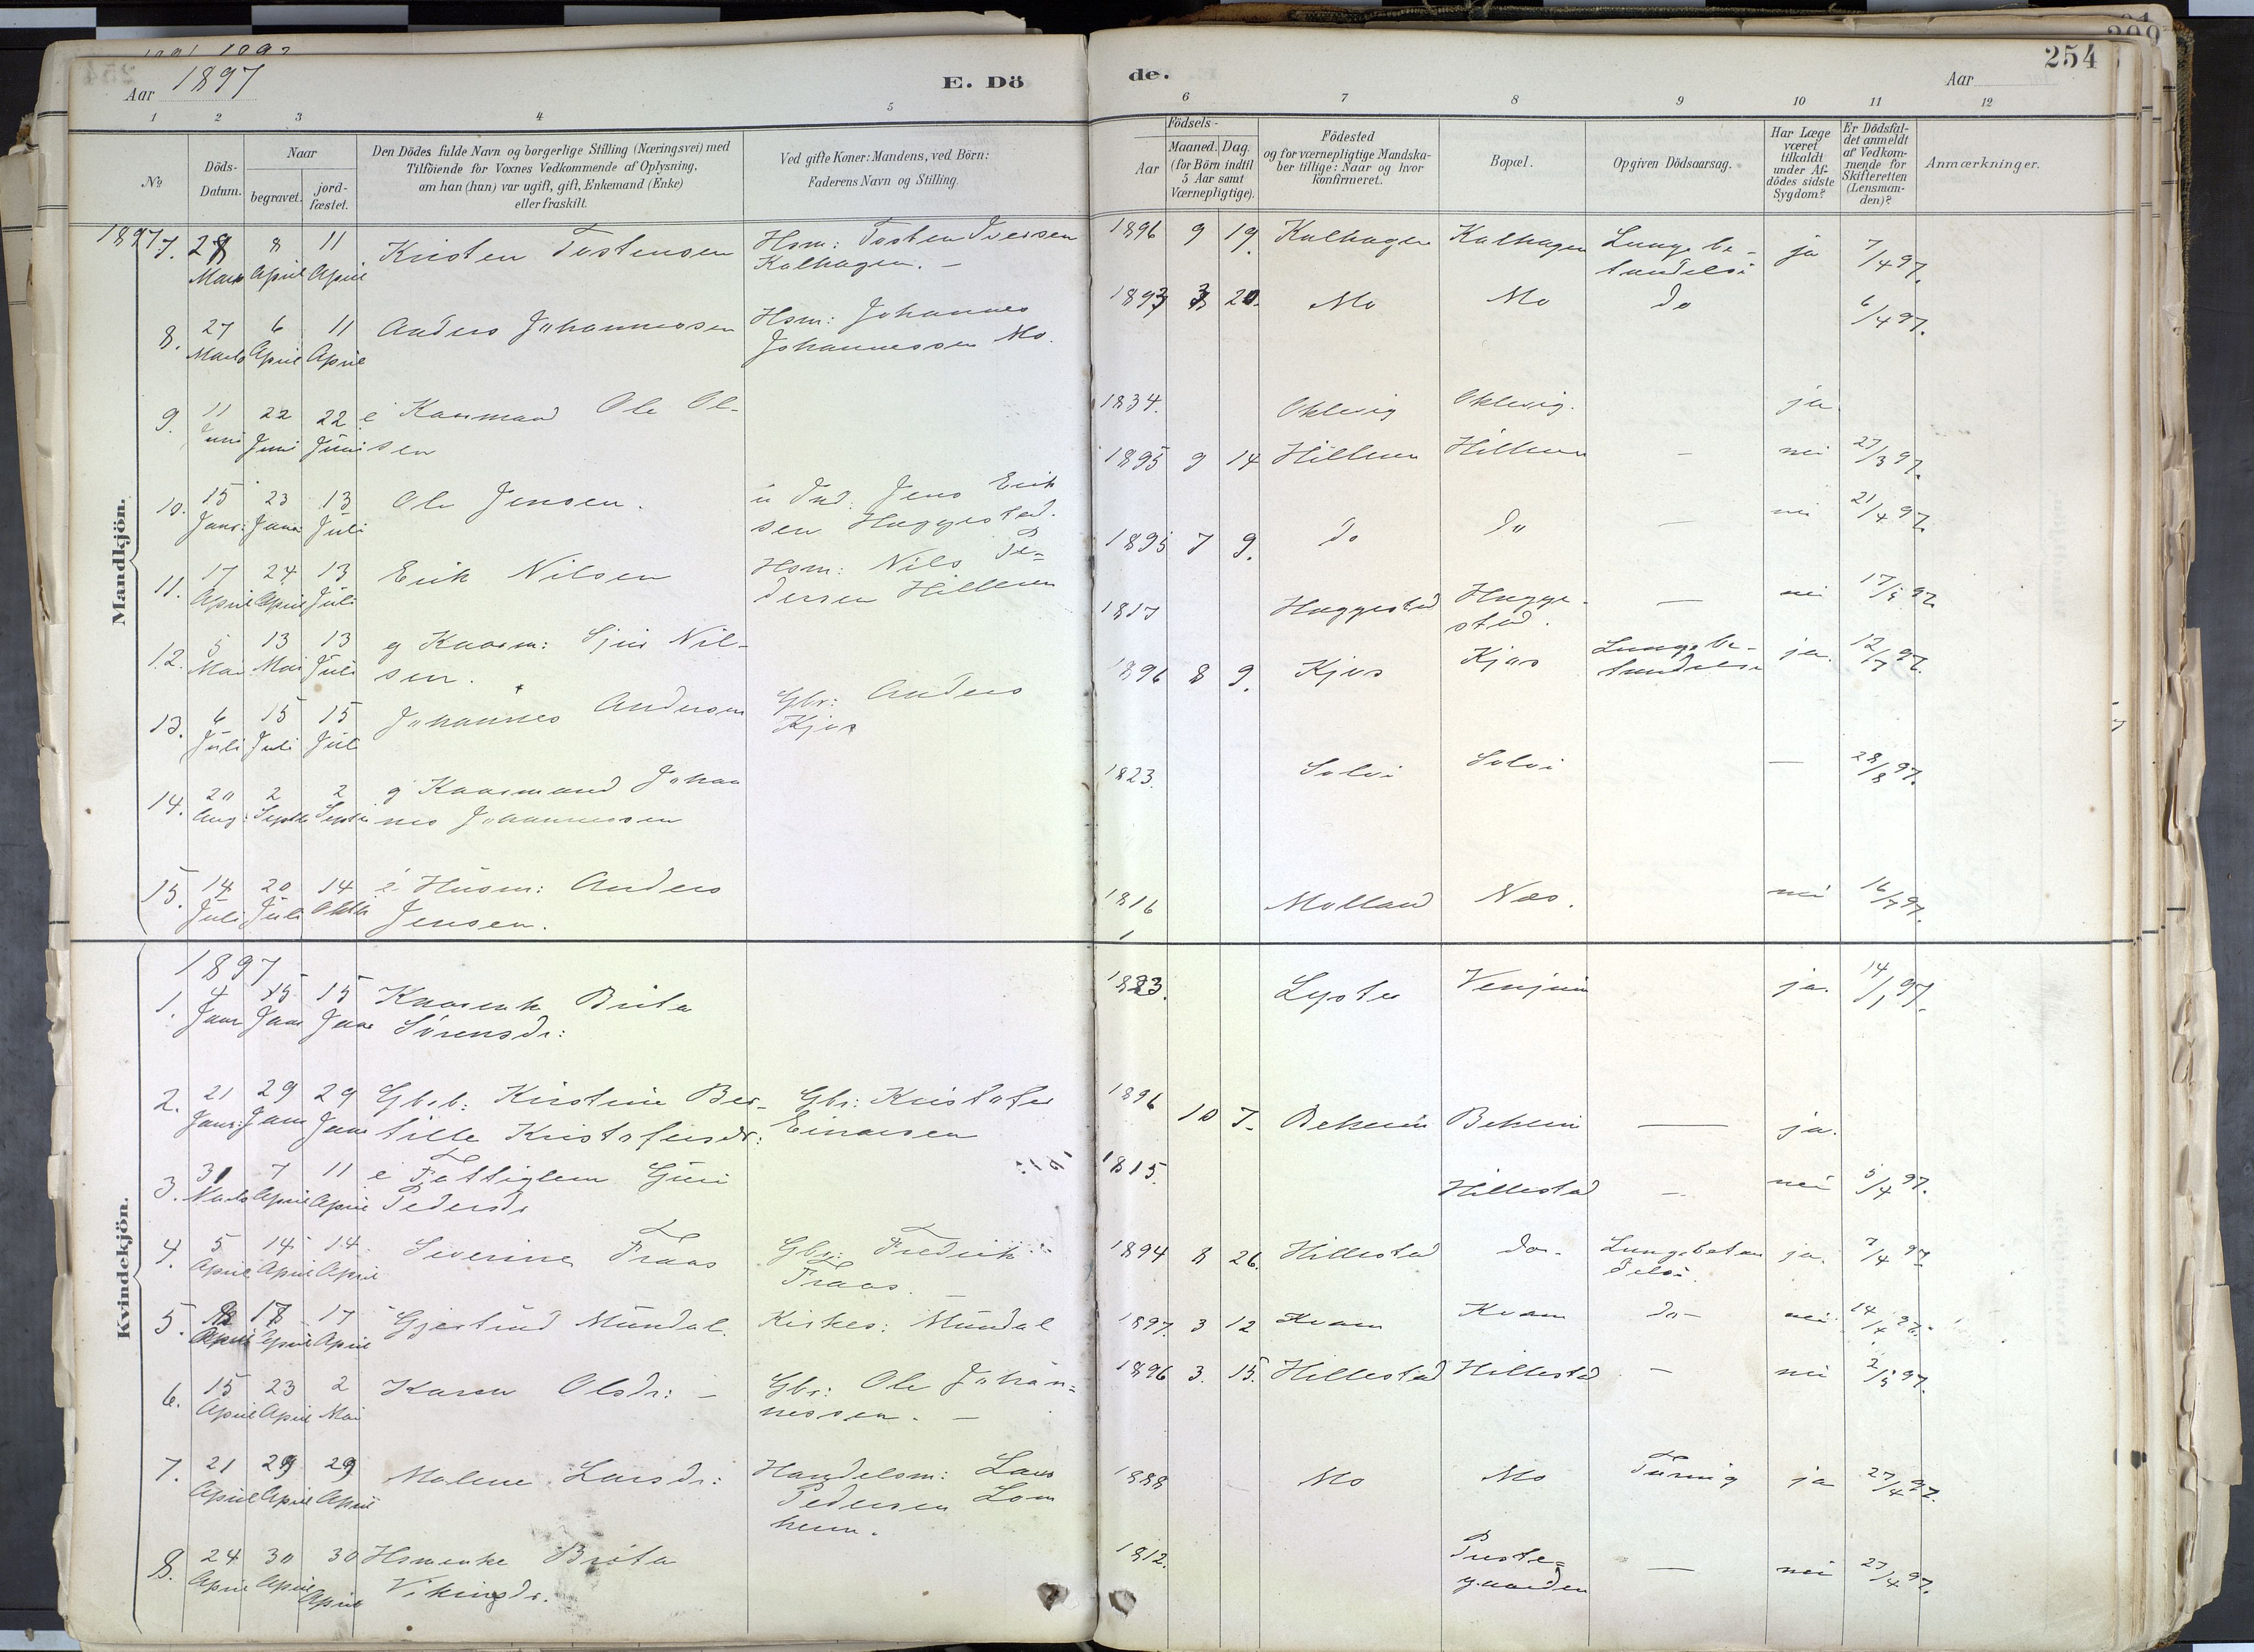 Aar 1897
E. Dö
de.
254
Aar
1 2 3 4 5 6 7 8 9 10 11 12
№
Döds-Datum.
Naar
begravet.
jord-fæstet.
Den Dödes fulde Navn og borgerlige Stilling (Næringsvei) med
Tilföiende for Voxnes Vedkommende af Oplysning.
om han (hun) var ugift, gift, Enkemand (Enke)
eller fraskilt.
Ved gifte Koner: Mandens, ved Börn:
Faderens Navn og Stilling.
Födsels-
Aar
Maaned. Dag.
(for Börn indtil
5 Aar samt
Værnepligtige).
Födested
og for værnepligtige Mandska-
ber tillige: Naar og hvor
konfirmeret.
Bopæl.
Opgiven Dödsaarsag.
Har Læge
været
tilkaldt
under Af-
dödes sidste
Sygdom?
Er Dödsfal-
det anmeldt
af Vedkom-
mende for
Skifteretten
(Lensman-
den)?
Anmærkninger.
Mandkjön.
1897
7. 28 Marts 8 April 11 April Kristen Tostensen Hsm: Tosten Iversen Kalhagen. – 1896 9 19. Kalhagen Kalhagen Lungebe-tændelse ja 7/4 97.
8. 27 Marts 6 April 11 April Anders Johannessen Hsm: Johannes Johannessen Mo. 1893 3 20. Mo Mo do 6/4 97.
9. 11 Juni 22 Juni 22 Juni e Kaarmand Ole Ol-sen 1834. Oklevig Oklevig. ja.
10. 15 Janr: 23 Janr 13 Juli Ole Jensen. Ind: Jens Erik sen Haggestad. 1895 9 14 Hillern Hillern – nei 27/3 97.
11. 17 April 24 April 13 Juli Erik Nilsen Hsm: Nils Pe-dersen Hillern 1895 7 9. do do – nei 21/4 97.
12. 5 Mai 13 Mai 13 Juli g Kaarm: Sjur Nil-sen. 1817 Haggestad Hagge-stad. – nei 17/5 97.
13. 6 Juli 15 Juli 15 Jul Johannes Andersen Gbr: Anders Kjos 1896 8 9. Kjos Kjos Lungebe-tændelse ja. 12/7 97.
14. 20 Aug: 2 Septb 2 Septb g Kaarmand Johan nes Johannessen 1823. Solvi Solvi – 28/8 97.
15. 14 Juli 20 Juli 14 Oktb e Husm: Anders Jensen. 1816 Molland Næs. nei 16/7 97.
Kvindekjön.
1897
1. 4 Janr 15 Janr 15 Janr Kaarenk Brita Sörensdr: 1823. Lyster Venjum ja. 14/1 97.
2. 21 Janr: 29 Janr 29 Janr Gbrb: Kristine Ber-tille Kristofersdr: Gbr: Kristofer Einarsen 1896 10 7. Bekken Bekken – ja.
3. 31 Marts 7 April 11 April e Fattiglem Guri Pedersdr 1815. Hillestad – nei 5/4 97.
4. 5 April 14 April 14 April Severine Traas Gbr: Fredrik Traas. 1894 8 26. Hillestad do. Lungebetæn delse. ja. 7/4 97
5. April 17 April 17 April Gjertrud Mundal. Kirkes: Mundal 1897. 3 12 Kvam Kvam do – nei 14/4 97.
6. 15 April 23 April 2 Mai Karen Olsdr: – Gbr: Ole Johan=nessen. – 1896 3. 15. Hillestad Hillestad – nei 2/5 97.
7. 21 April 29 April 29 April Malene Larsdr: Handelsm: Lars Pedersen Lom heim. 1888 Mo Mo Tæring ja 27/4 97.
8. 24 April 30 April 30 April Hsmenke Brita Vikingsdr. 1812. Præste=gaarden – nei 27/4 97.